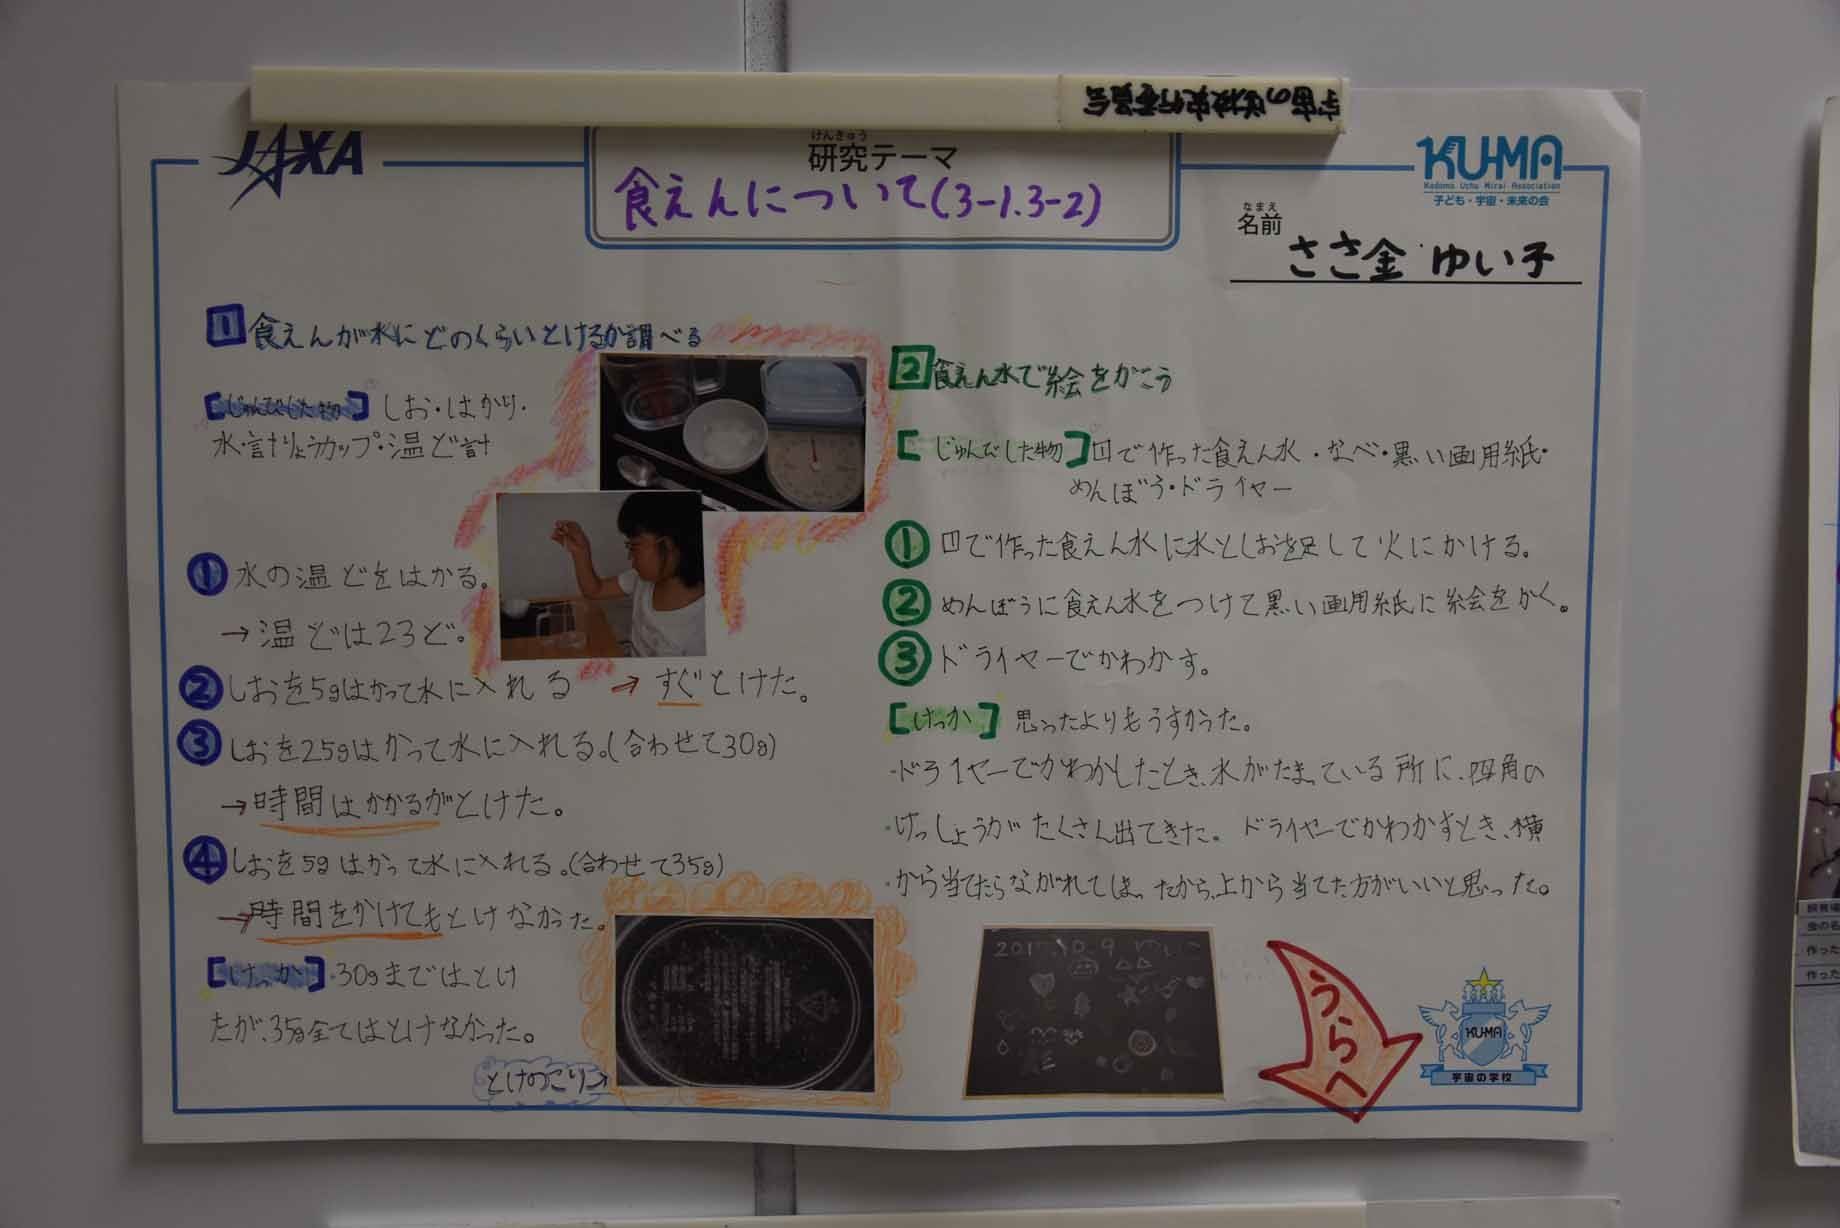 宇宙の学校実行委員会
JAXA
けんきゅう
研究テーマ
食えんについて(3-1.3-2)
KU-MA
Kodomo Uchu Mirai Association
子ども・宇宙・未来の会
なまえ
名前
ささ金 ゆい子
1 食えんが水にどのくらいとけるか調べる
[じゅんびした物] しお・はかり・
水・計りょうカップ・温ど計
① 水の温どをはかる。
→温どは23ど。
② しおを5gはかって水に入れる → すぐとけた。
③ しおを25gはかって水に入れる。(合わせて30g)
→時間はかかるがとけた。
④ しおを5gはかって水に入れる。(合わせて35g)
→時間をかけてもとけなかった。
[けっか]・30gまではとけ
たが、35g全てはとけなかった。
とけのこり→
2 食えん水で絵をかこう
[じゅんびした物] 1で作った食えん水・なべ・黒い画用紙・
めんぼう・ドライヤー
① 1で作った食えん水に水としおを足して火にかける。
② めんぼうに食えん水をつけて黒い画用紙に絵をかく。
③ ドライヤーでかわかす。
[けっか] 思ったよりもうすかった。
・ドライヤーでかわかしたとき、水がたまっている所に、四角の
けっしょうがたくさん出てきた。ドライヤーでかわかすとき、横
から当てたらながれてしまった。だから、上から当てた方がいいと思った。
10.9 ゆいこ
うらへ
KU-MA
宇宙の学校